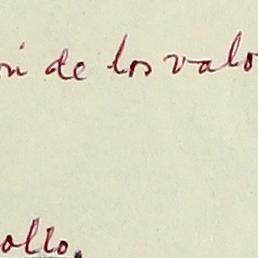 ón de los valo
ollo.